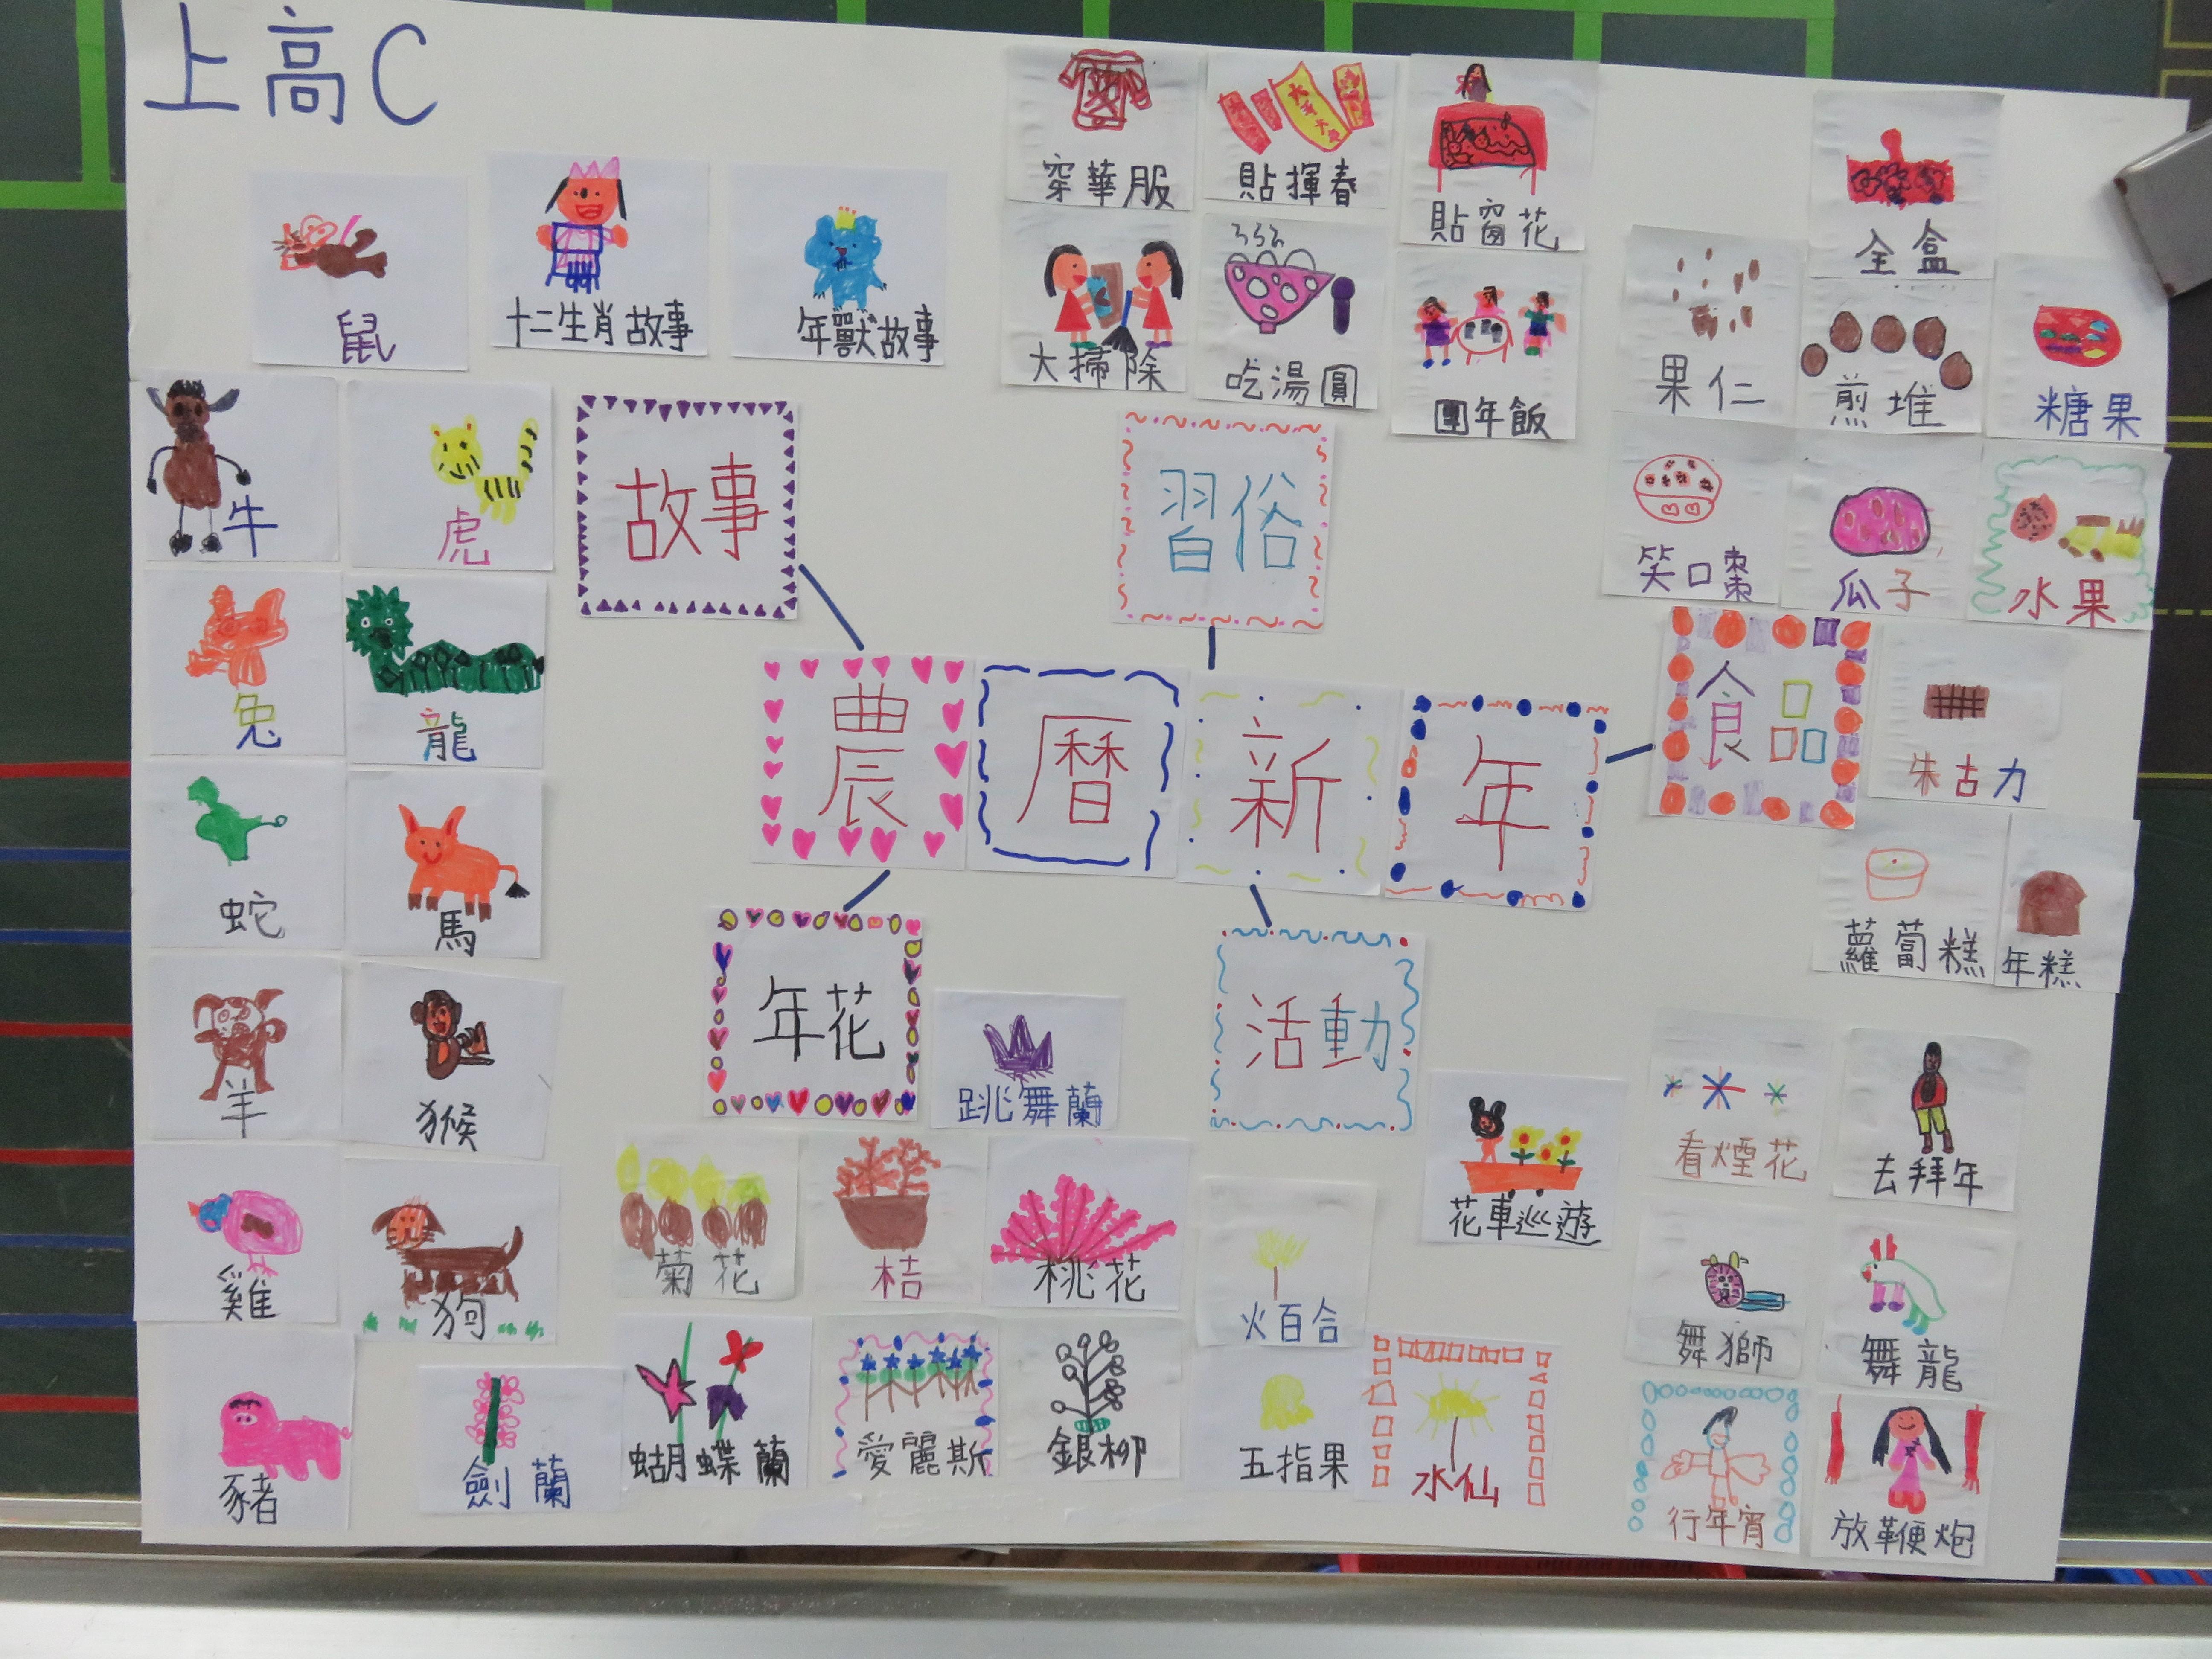 上高C
鼠
十二生肖故事
年獸故事
牛
虎
兔
龍
蛇
馬
羊
猴
雞
狗
豬
故事
穿華服
貼揮春
貼窗花
大掃除
吃湯圓
團年飯
習俗
全盒
果仁
煎堆
糖果
笑口棗
瓜子
水果
食品
朱古力
蘿蔔糕
年糕
農曆新年
年花
跳舞蘭
菊花
桔
桃花
火百合
劍蘭
蝴蝶蘭
愛麗斯
銀柳
五指果
水仙
活動
花車巡遊
看煙花
去拜年
舞獅
舞龍
行年宵
放鞭炮